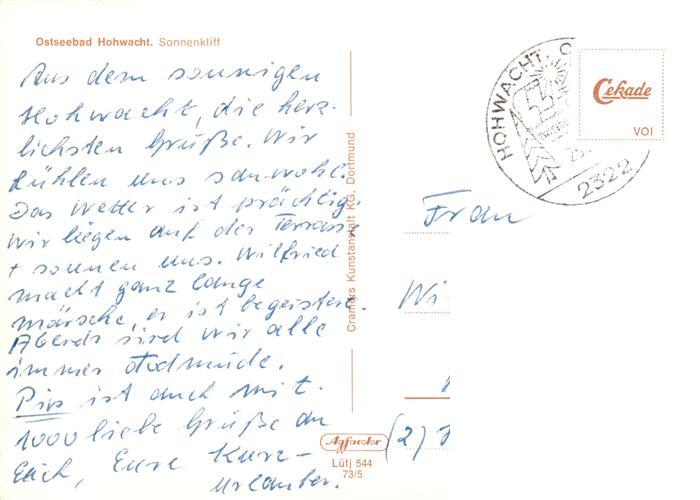 Ostseebad Hohwacht. Sonnenkliff
Aus dem sonnigen
Hohwacht, die herz-
lichsten Grüße. Wir
fühlen uns sauwohl.
Das Wetter ist prächtig
wir liegen auf der Terrasse
+ sonnen uns. Wilfried
macht ganz lange
märsche, er ist begeistert.
Abends sind wir alle
immer todmüde.
ist auch mit.
1000 liebe Grüße an
Euch, Eure Kurz-
urlauber.
Cramers Kunstanstalt KG, Dortmund
Agfacolor
Lütj 544
73/5
HOHWACHT, O
2322
Cekade
VOI
Frau
Wi
(2)